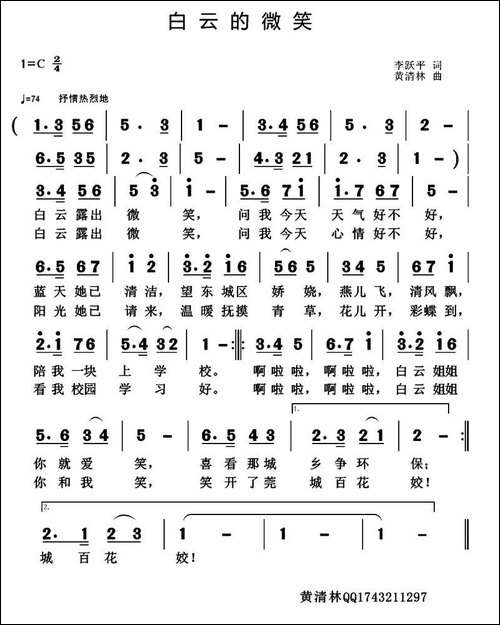 白云的微笑
1=C 2/4
李跃平 词
黄清林 曲
♩=74 抒情热烈地
( 1.3 56 | 5 . 3 | 1 - | 3.4 56 | 5 . 3 |
6.5 35 | 2 . 3 | 5 - | 4.3 21 | 2 . 3 | 1 - )
3.4 56 | 5 3 | 1 - | 5.6 71 | 1.7 67 | 5 - |
白云露出 微 笑， 问我今天 天气好不 好，
白云露出 微 笑， 问我今天 心情好不 好，
6.5 67 | 1 2 | 3.2 16 | 5 5 | 34 5 | 67 1 |
蓝天她已 清洁， 望东城区 娇娆， 燕儿飞， 清风飘，
阳光她已 请来， 温暖抚摸 青草， 花儿开， 彩蝶到，
2.1 76 | 5.4 32 | 1 - :||: 5.3 5 | 6.5 6 | 7.6 23 |
陪我一块 上学 校。 啊啦啦， 啊啦啦， 白云姐姐
看我校园 学习 好。 啊啦啦， 啊啦啦， 白云姐姐
1.
5.6 34 | 5 - | 1.2 34 | 3.2 21 | 2 - :||
你就爱 笑， 喜看那城 乡争环 保；
你和我 笑， 笑开了莞 城百花 姣！
2.
2. 1 | 2 3 | 1 - | 1 - | 1 - ||
城百花 姣！
黄清林QQ1743211297